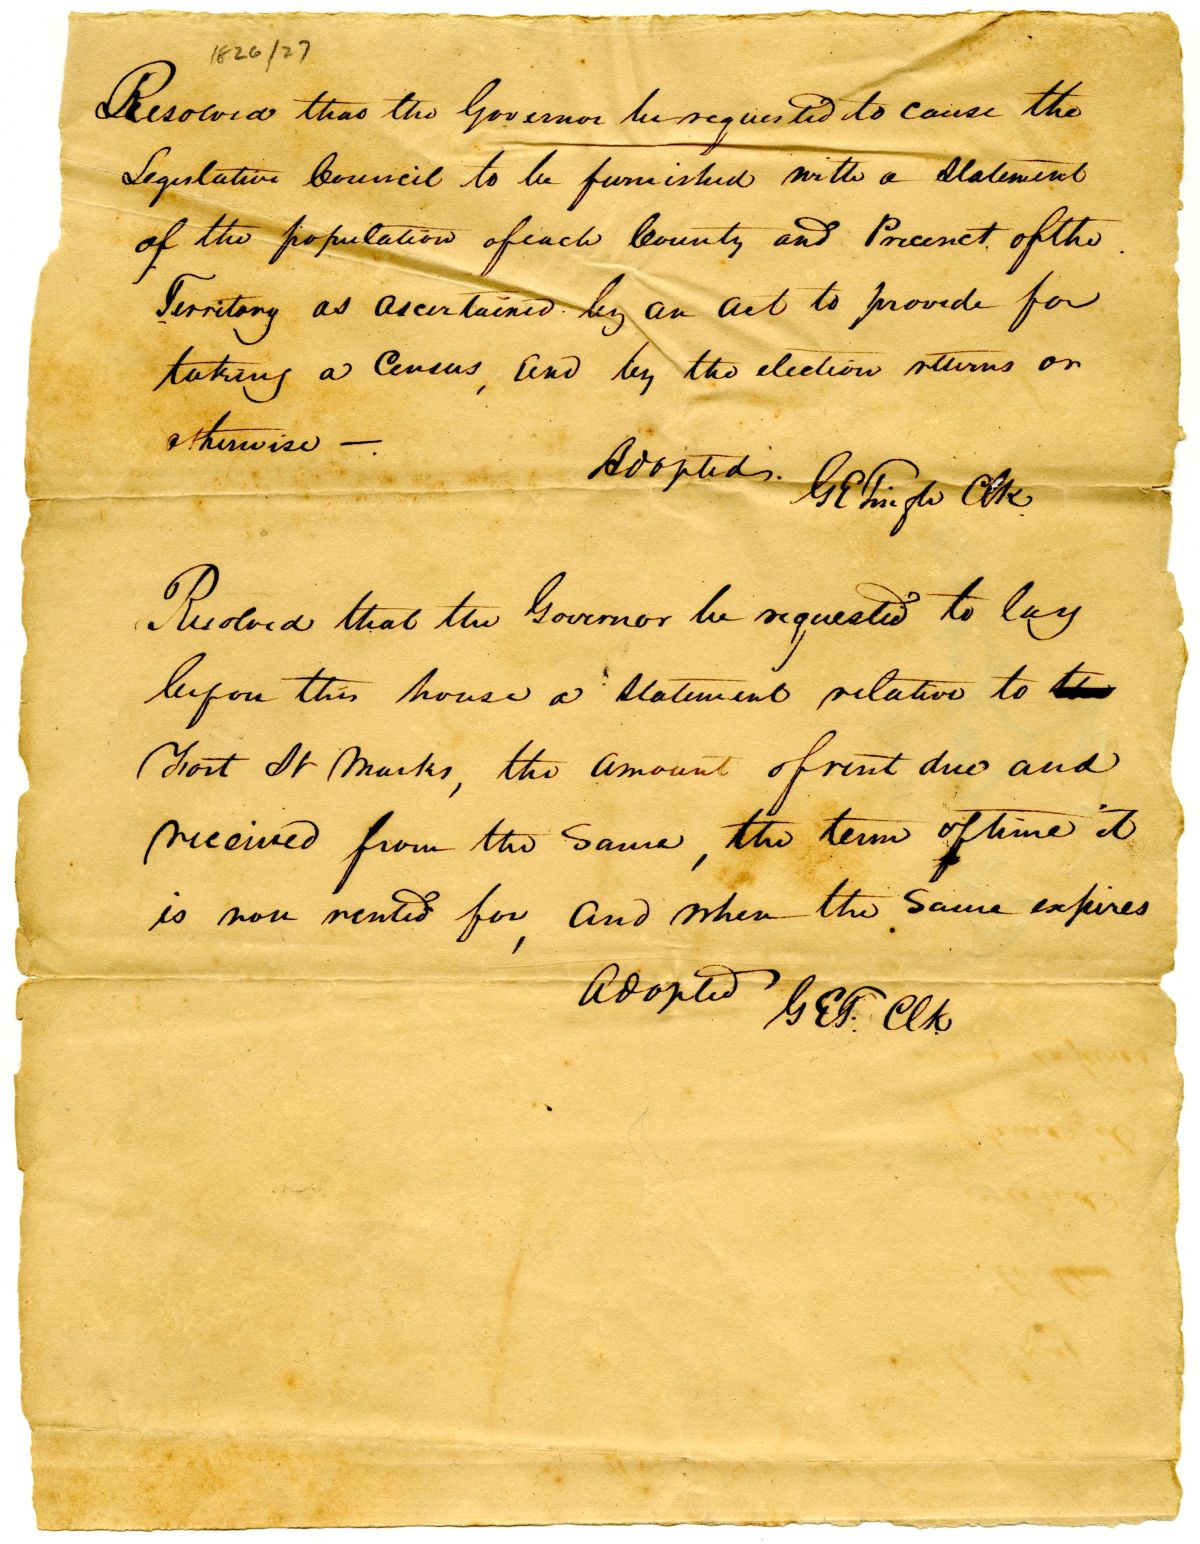 1826/27
Resolved that the Governor be requested to cause the
Legislative Council to be furnished with a Statement
of the population of each County and Precinct of the
Territory as ascertained by an act to provide for
taking a Census, and by the election returns or
otherwise —.
Adopted.
GETingle Clk
Resolved that the Governor be requested to lay
before this house a Statement relative to the
Fort St Marks, the amount of rent due and
received from the same, the term of time it
is now rented for, and when the same expires
Adopted
GET. Clk